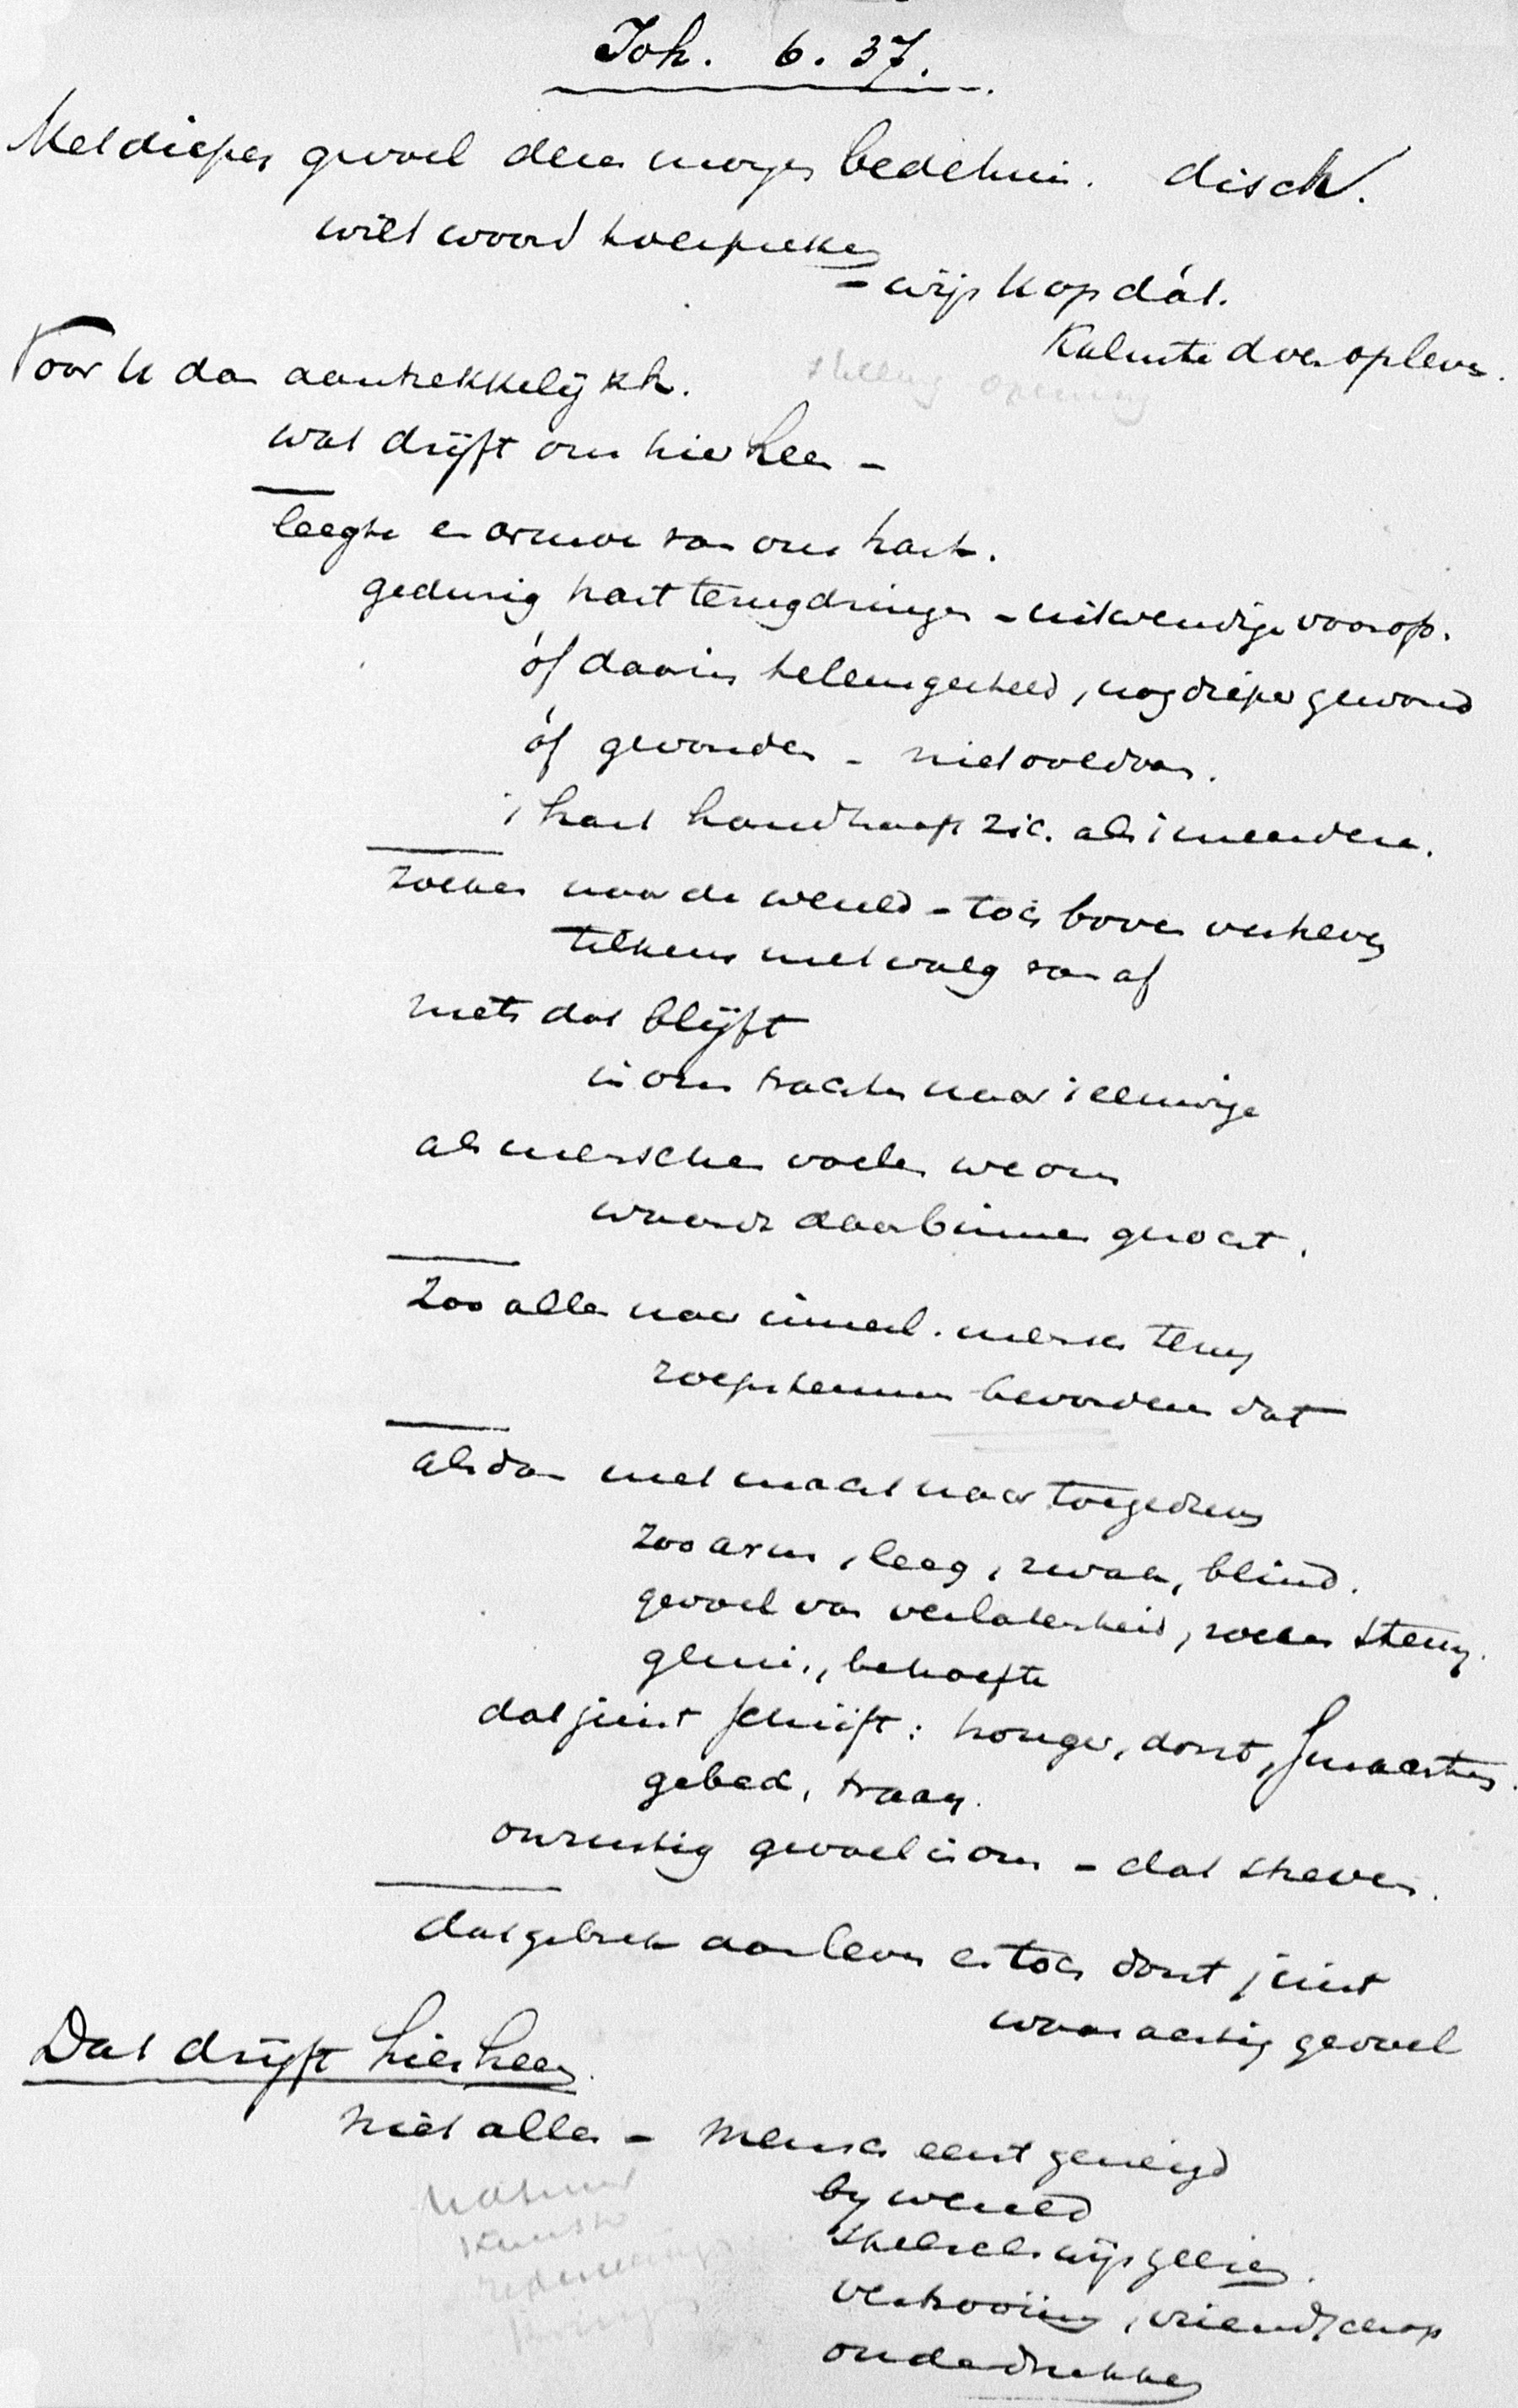 Joh. 6. 37.
Met dieper gevoel dezen morgen bedehuis. disch.
wilt woord toespreken
- wijs U op dát.
Kalmte doen opleven.
Voor U dan aantrekkelijkh.
stelling opening
wat drijft ons hierheen -
leegte en armoe van ons hart.
gedurig hart terugdringen - uitwendige voorop.
óf daarin teleurgesteld, nog dieper gewond
óf gevonden - niet voldoen.
't hart handhaaft zich als 't meerdere.
zoeken naar de wereld - toch boven verheven
telkens met walg van af
niets dat blijft
in ons trachten naar 't eeuwige
als menschen voelen we ons
waard daarbinnen groeit.
Zoo alles naar innerl. mensch terug
roepstemmen bevorderen dat
als dan met macht naar toegedreven
zoo arm, leeg, zwak, blind.
gevoel van verlatenheid, zoeken steun.
gemis, behoefte
dat juist Schrift: honger, dorst, smachten.
gebed, traan.
onrustig gevoel in ons - dat streven.
dat gebrek aan leven en toch dorst juist
waarachtig gevoel
Dat drijft hierheen.
Niet allen - mensch eerst geneigd
by wereld
stelsel wijsgeeren.
verstrooiing, vriendschap
onderdrukken
Natuur
Kunst